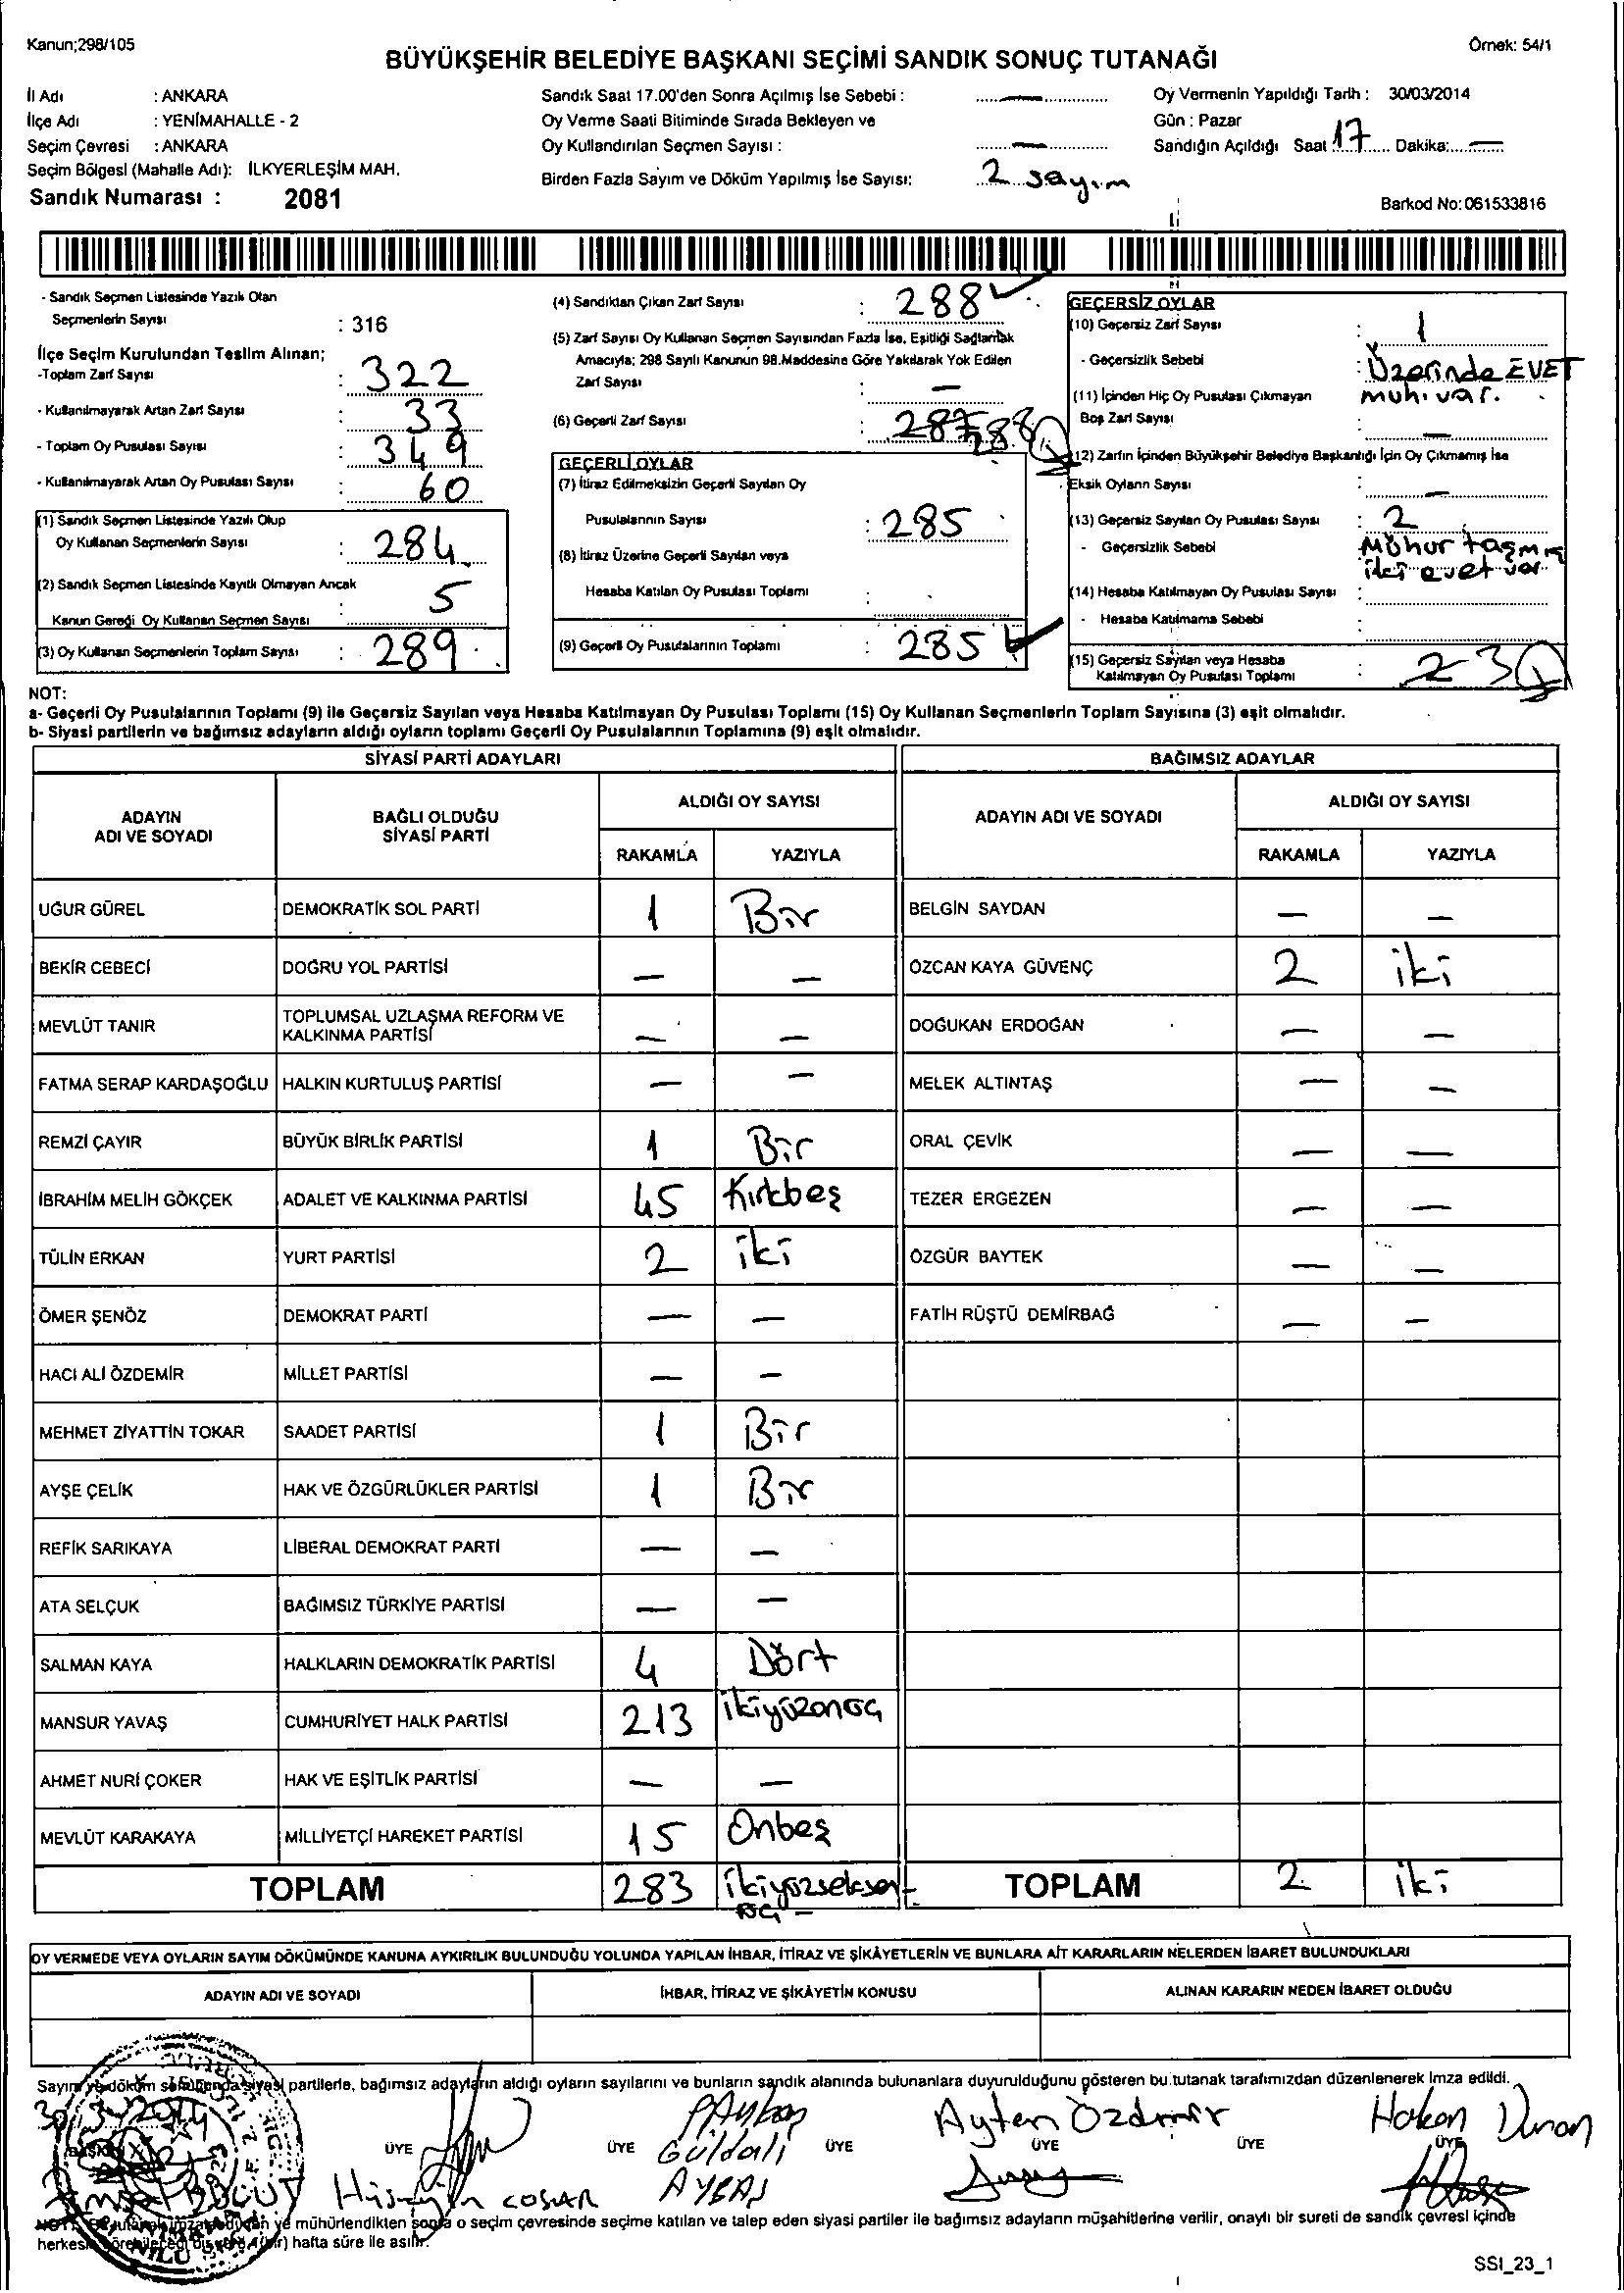 Kanun;298/105
Örnek: 54/1
BÜYÜKŞEHİR BELEDİYE BAŞKANI SEÇİMİ SANDIK SONUÇ TUTANAĞI
İl Adı : ANKARA
İlçe Adı : YENİMAHALLE - 2
Seçim Çevresi : ANKARA
Seçim Bölgesi (Mahalle Adı): İLKYERLEŞİM MAH.
Sandık Numarası : 2081
Sandık Saat 17.00'den Sonra Açılmış İse Sebebi : —
Oy Verme Saati Bitiminde Sırada Bekleyen ve
Oy Kullandırılan Seçmen Sayısı : —
Birden Fazla Sayım ve Döküm Yapılmış İse Sayısı: 2 sayım
Oy Vermenin Yapıldığı Tarih : 30/03/2014
Gün : Pazar
Sandığın Açıldığı Saat 17 Dakika: —
Barkod No: 061533816
- Sandık Seçmen Listesinde Yazılı Olan
Seçmenlerin Sayısı : 316
İlçe Seçim Kurulundan Teslim Alınan;
-Toplam Zarf Sayısı : 322
- Kullanılmayarak Artan Zarf Sayısı : 33
- Toplam Oy Pusulası Sayısı : 349
- Kullanılmayarak Artan Oy Pusulası Sayısı : 60
(1) Sandık Seçmen Listesinde Yazılı Olup
Oy Kullanan Seçmenlerin Sayısı : 284
(2) Sandık Seçmen Listesinde Kayıtlı Olmayan Ancak
Kanun Gereği Oy Kullanan Seçmen Sayısı : 5
(3) Oy Kullanan Seçmenlerin Toplam Sayısı : 289
(4) Sandıktan Çıkan Zarf Sayısı : 288
(5) Zarf Sayısı Oy Kullanan Seçmen Sayısından Fazla İse, Eşitliği Sağlamak
Amacıyla; 298 Sayılı Kanunun 98.Maddesine Göre Yakılarak Yok Edilen
Zarf Sayısı : —
(6) Geçerli Zarf Sayısı : 287 288
GEÇERLİ OYLAR
(7) İtiraz Edilmeksizin Geçerli Sayılan Oy
Pusulalarının Sayısı : 285
(8) İtiraz Üzerine Geçerli Sayılan veya
Hesaba Katılan Oy Pusulası Toplamı :
(9) Geçerli Oy Pusulalarının Toplamı : 285
GEÇERSİZ OYLAR
(10) Geçersiz Zarf Sayısı : 1
- Geçersizlik Sebebi : Üzerinde EVET
muh. var.
(11) İçinden Hiç Oy Pusulası Çıkmayan
Boş Zarf Sayısı : —
(12) Zarfın İçinden Büyükşehir Belediye Başkanlığı İçin Oy Çıkmamış İse
Eksik Oyların Sayısı : —
(13) Geçersiz Sayılan Oy Pusulası Sayısı : 2
- Geçersizlik Sebebi : Mühür taşmış
iki evet var
(14) Hesaba Katılmayan Oy Pusulası Sayısı :
- Hesaba Katılmama Sebebi :
(15) Geçersiz Sayılan veya Hesaba
Katılmayan Oy Pusulası Toplamı : 2 3
NOT:
a- Geçerli Oy Pusulalarının Toplamı (9) ile Geçersiz Sayılan veya Hesaba Katılmayan Oy Pusulası Toplamı (15) Oy Kullanan Seçmenlerin Toplam Sayısına (3) eşit olmalıdır.
b- Siyasi partilerin ve bağımsız adayların aldığı oyların toplamı Geçerli Oy Pusulalarının Toplamına (9) eşit olmalıdır.
SİYASİ PARTİ ADAYLARI BAĞIMSIZ ADAYLAR
ADAYIN ADI VE SOYADI BAĞLI OLDUĞU SİYASİ PARTİ ALDIĞI OY SAYISI ADAYIN ADI VE SOYADI ALDIĞI OY SAYISI
RAKAMLA YAZIYLA RAKAMLA YAZIYLA
UĞUR GÜREL DEMOKRATİK SOL PARTİ 1 Bir BELGİN SAYDAN — —
BEKİR CEBECİ DOĞRU YOL PARTİSİ — — ÖZCAN KAYA GÜVENÇ 2 iki
MEVLÜT TANIR TOPLUMSAL UZLAŞMA REFORM VE KALKINMA PARTİSİ — — DOĞUKAN ERDOĞAN — —
FATMA SERAP KARDAŞOĞLU HALKIN KURTULUŞ PARTİSİ — — MELEK ALTINTAŞ — —
REMZİ ÇAYIR BÜYÜK BİRLİK PARTİSİ 1 Bir ORAL ÇEVİK — —
İBRAHİM MELİH GÖKÇEK ADALET VE KALKINMA PARTİSİ 45 Kırkbeş TEZER ERGEZEN — —
TÜLİN ERKAN YURT PARTİSİ 2 iki ÖZGÜR BAYTEK — —
ÖMER ŞENÖZ DEMOKRAT PARTİ — — FATİH RÜŞTÜ DEMİRBAĞ — —
HACI ALİ ÖZDEMİR MİLLET PARTİSİ — —
MEHMET ZİYATTİN TOKAR SAADET PARTİSİ 1 Bir
AYŞE ÇELİK HAK VE ÖZGÜRLÜKLER PARTİSİ 1 Bir
REFİK SARIKAYA LİBERAL DEMOKRAT PARTİ — —
ATA SELÇUK BAĞIMSIZ TÜRKİYE PARTİSİ — —
SALMAN KAYA HALKLARIN DEMOKRATİK PARTİSİ 4 Dört
MANSUR YAVAŞ CUMHURİYET HALK PARTİSİ 213 ikiyüzonüç
AHMET NURİ ÇOKER HAK VE EŞİTLİK PARTİSİ — —
MEVLÜT KARAKAYA MİLLİYETÇİ HAREKET PARTİSİ 15 Onbeş
TOPLAM 283 ikiyüzseksen- üç — TOPLAM 2 iki
OY VERMEDE VEYA OYLARIN SAYIM DÖKÜMÜNDE KANUNA AYKIRILIK BULUNDUĞU YOLUNDA YAPILAN İHBAR, İTİRAZ VE ŞİKÂYETLERİN VE BUNLARA AİT KARARLARIN NELERDEN İBARET BULUNDUKLARI
ADAYIN ADI VE SOYADI İHBAR, İTİRAZ VE ŞİKÂYETİN KONUSU ALINAN KARARIN NEDEN İBARET OLDUĞU
Sayım ve döküm sonucunda siyasi partilerle, bağımsız adayların aldığı oyların sayılarını ve bunların sandık alanında bulunanlara duyurulduğunu gösteren bu tutanak tarafımızdan düzenlenerek imza edildi.
30/3/2014
Ayten Özdemir
Hakan Duran
BAŞKAN ÜYE ÜYE ÜYE ÜYE ÜYE ÜYE
Güldalı
Hüseyin COŞAR AYBAŞ
ve mühürlendikten sonra o seçim çevresinde seçime katılan ve talep eden siyasi partiler ile bağımsız adayların müşahitlerine verilir, onaylı bir sureti de sandık çevresi içinde
hafta süre ile asılır.
SSI_23_1